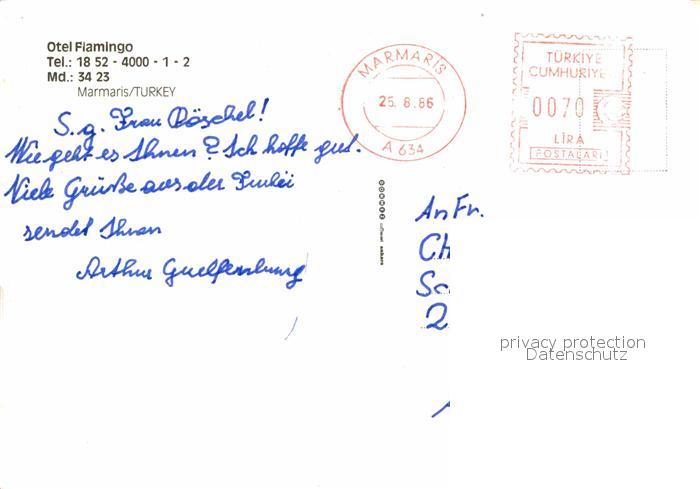 Otel Flamingo
Tel.: 18 52 - 4000 - 1 - 2
Md.: 34 23
Marmaris/TURKEY
S. g. Frau
Wie geht es Ihnen? Ich hoffe gut.
Viele Grüße aus der Türkei
sendet Ihnen
Arthur
MARMARİS
25.8.86
A 634
TÜRKİYE
CUMHURİYE
0070
LİRA
POSTALARI
An Fr.
Ch
Sc
2
privacy protection
Datenschutz